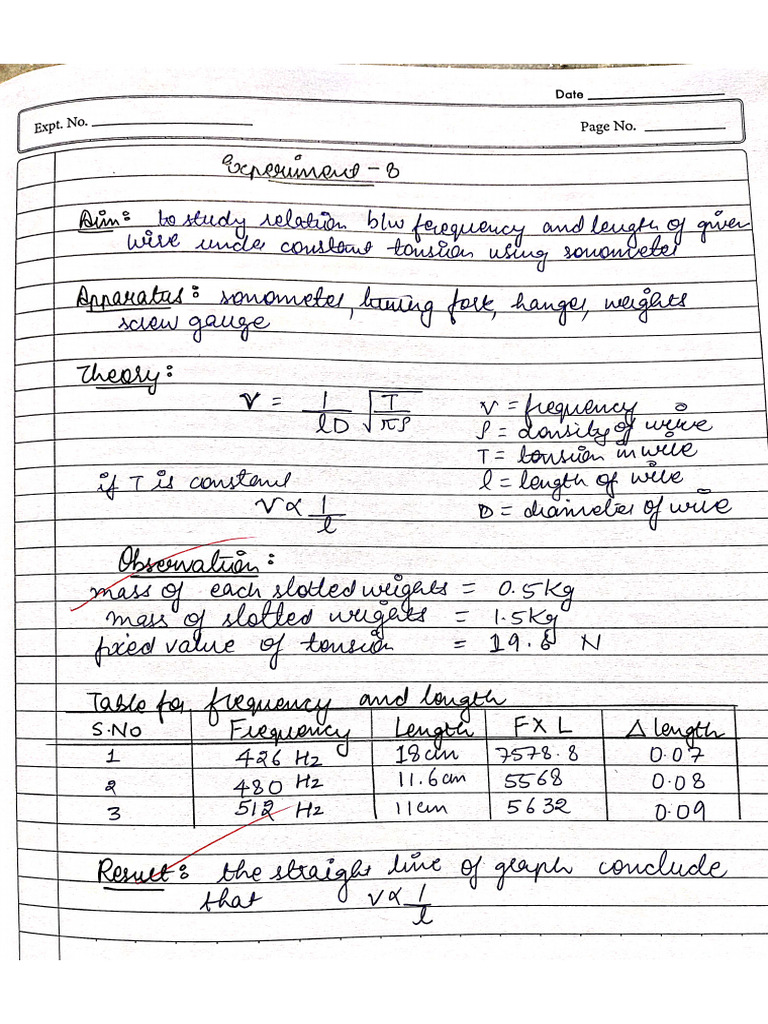 Date
Expt. No.
Page No.
Experiment - 8
Aim: to study relation b/w ferequency and length of given
wire under constant tension using sonometer
Apparatus: sonometer, tuning fork, hanger, weights
screw gauge
Theory:
ν = 1/lD √T/πρ
ν = frequency
ρ = density of wire
T = tension in wire
if T is constant
l = length of wire
ν ∝ 1/l
D = diameter of wire
Observation:
mass of each slotted weights = 0.5kg
mass of slotted weights = 1.5kg
fixed value of tension = 19.6 N
Table for frequency and length
S.No Frequency Length F X L Δ length
1 426 Hz 18cm 7578.8 0.07
2 480 Hz 11.6cm 5568 0.08
3 512 Hz 11cm 5632 0.09
Result: the straight line of graph conclude
that ν ∝ 1/l